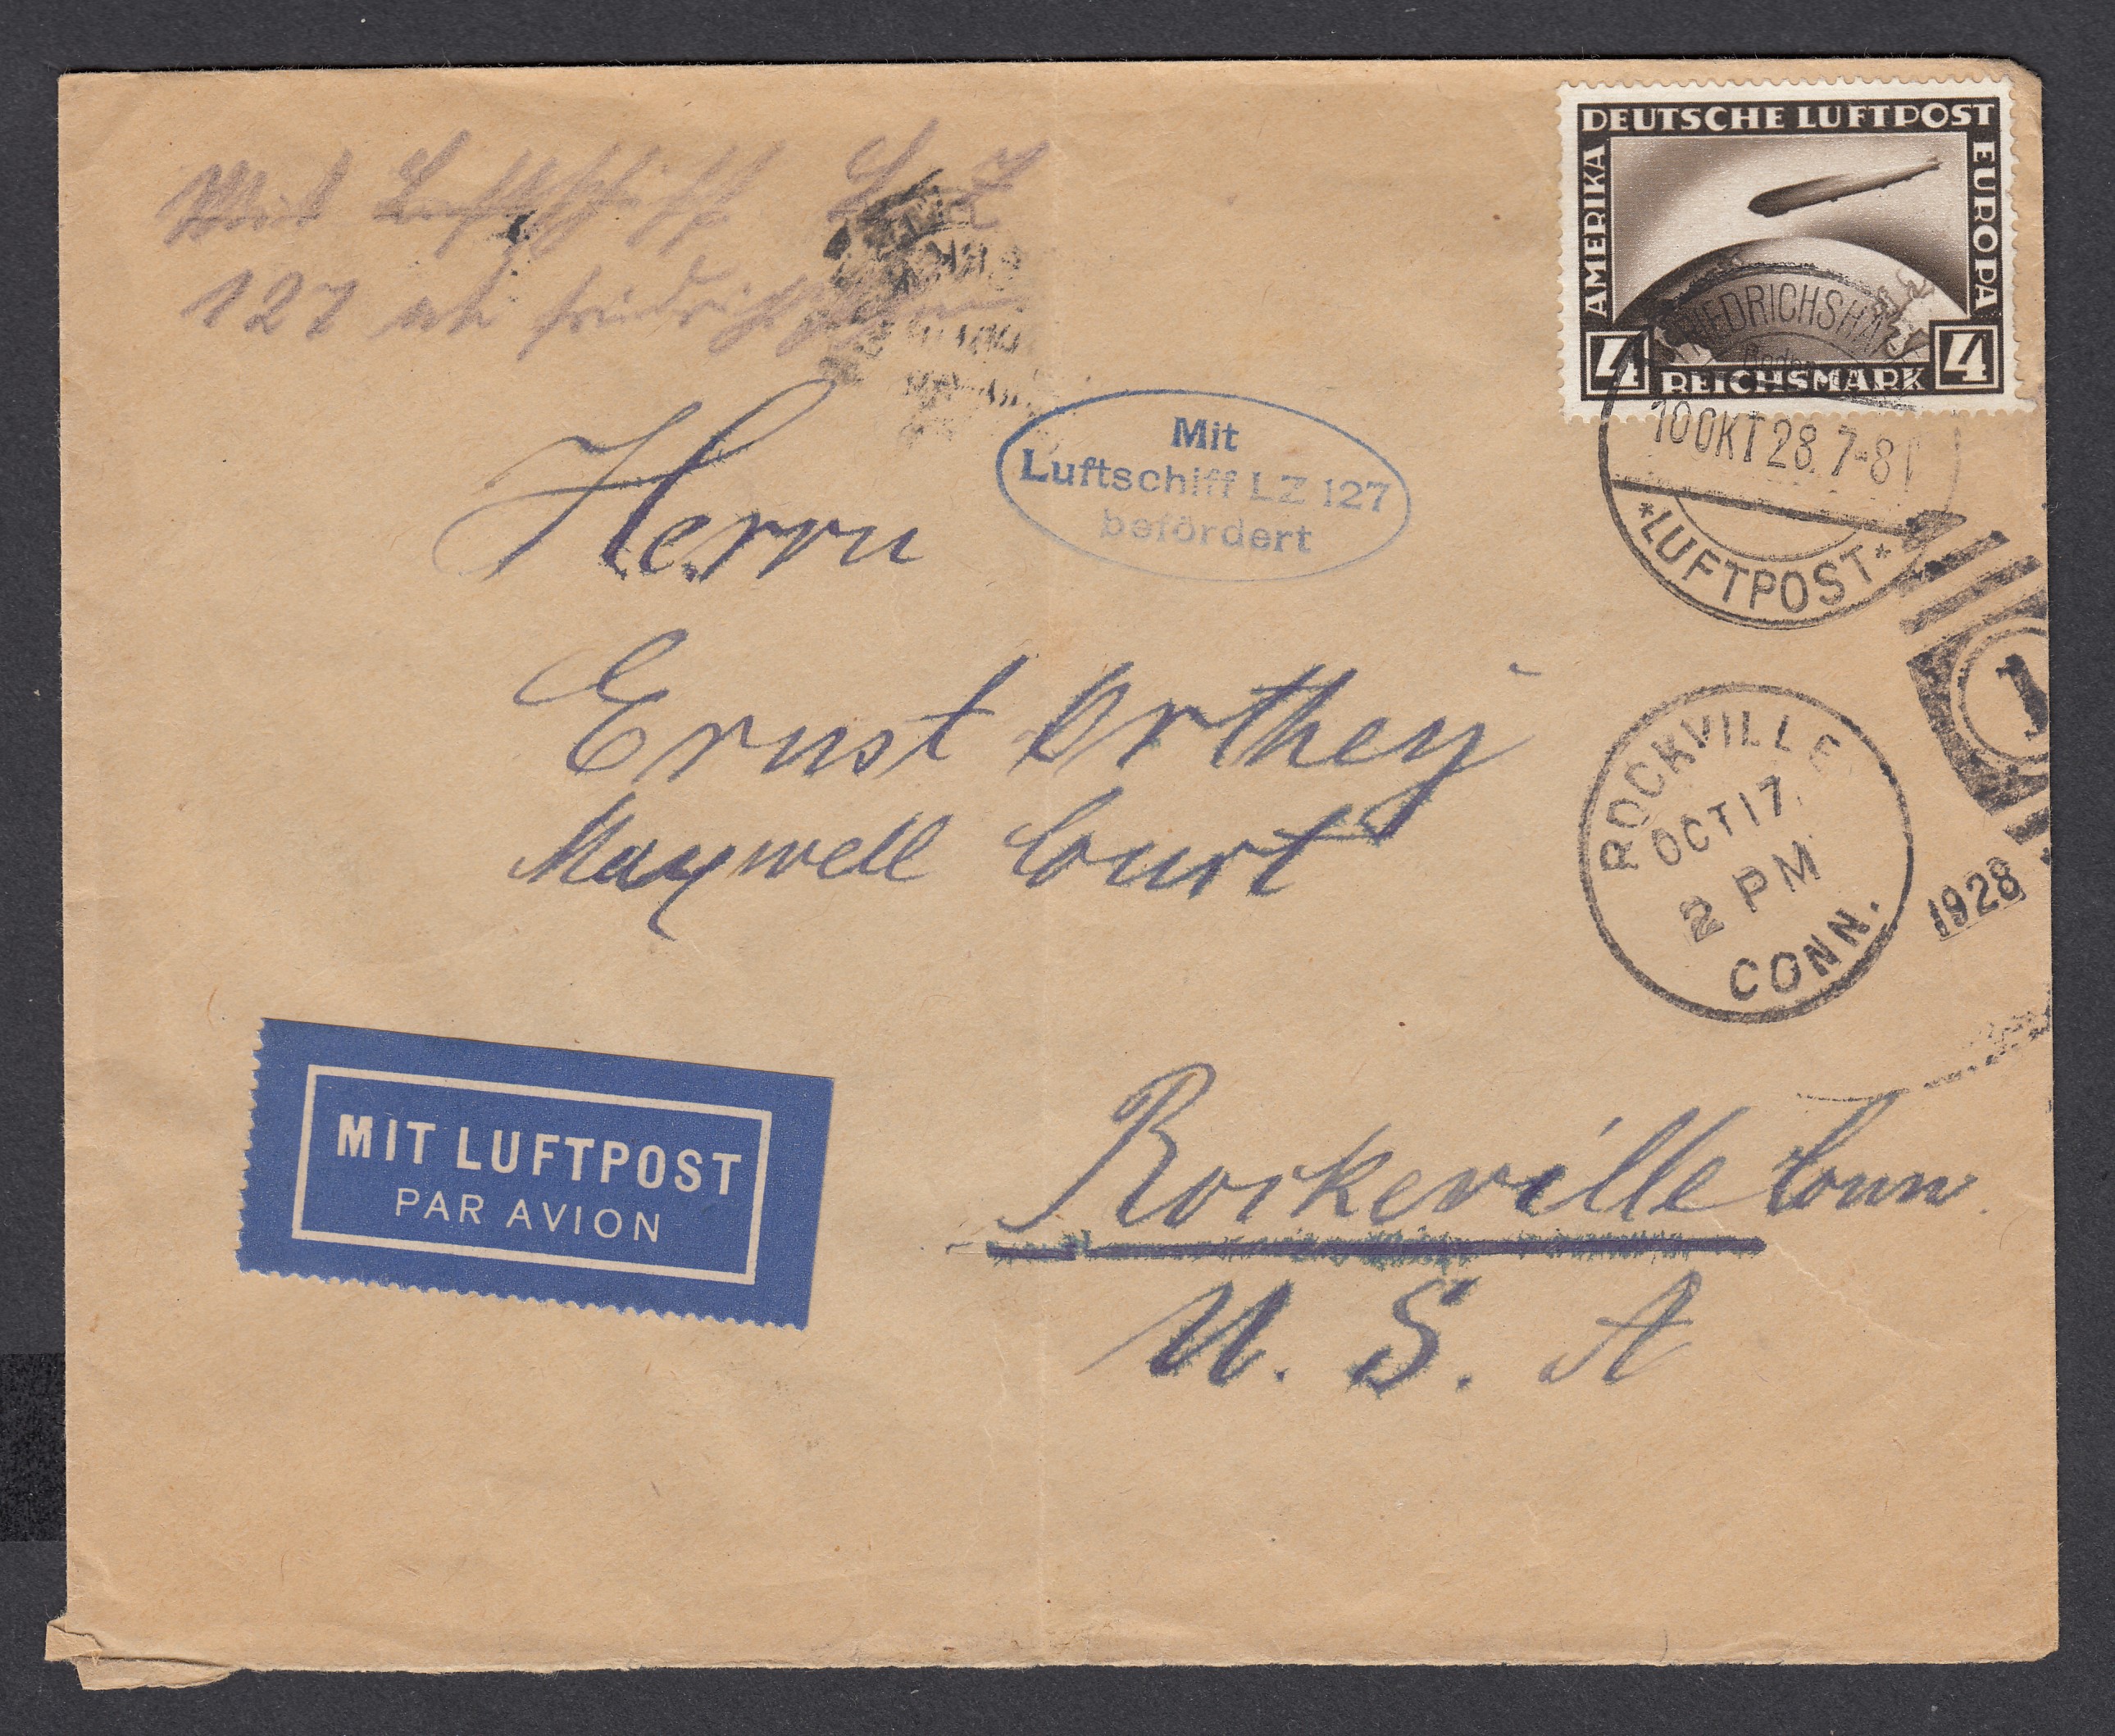 Mit Luftschiff L. Z
127 ab Friedrichshafen
DEUTSCHE LUFTPOST
AMERIKA
EUROPA
4 REICHSMARK 4
FRIEDRICHSHAFEN
10 OKT 28. 7-8
*LUFTPOST*
Mit
Luftschiff LZ 127
befördert
Herrn
Ernst Orthey
Maxwell Court
ROCKVILLE
OCT 17
2 PM
CONN.
1
1928
MIT LUFTPOST
PAR AVION
Rockeville Conn.
U. S. A